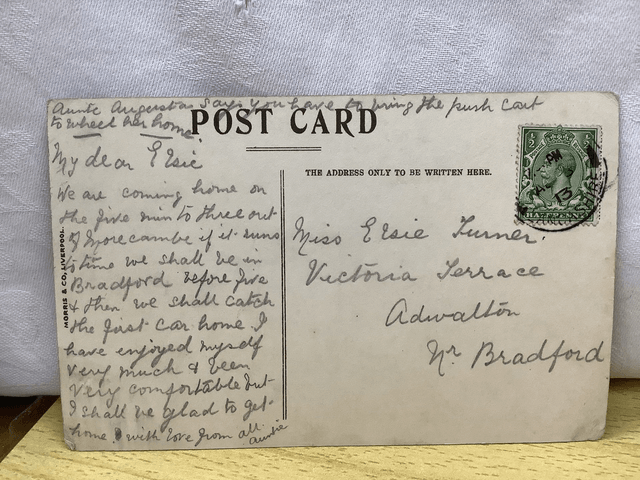 Aunte Augusta Says you have to bring the push cart
to wheel her home.
POST CARD
THE ADDRESS ONLY TO BE WRITTEN HERE.
My dear Elsie
We are coming home on
the five min to three out
of Morecambe if it runs
to time we shall be in
Bradford before five
& then we shall catch
the first car home. I
have enjoyed myself
very much & been
very comfortable but
I shall be glad to get
home. with love from all.
Auntie
MORRIS & CO, LIVERPOOL.
Miss Elsie Turner.
Victoria Terrace
Adwalton
Nr Bradford
HALFPENNY
PM
13